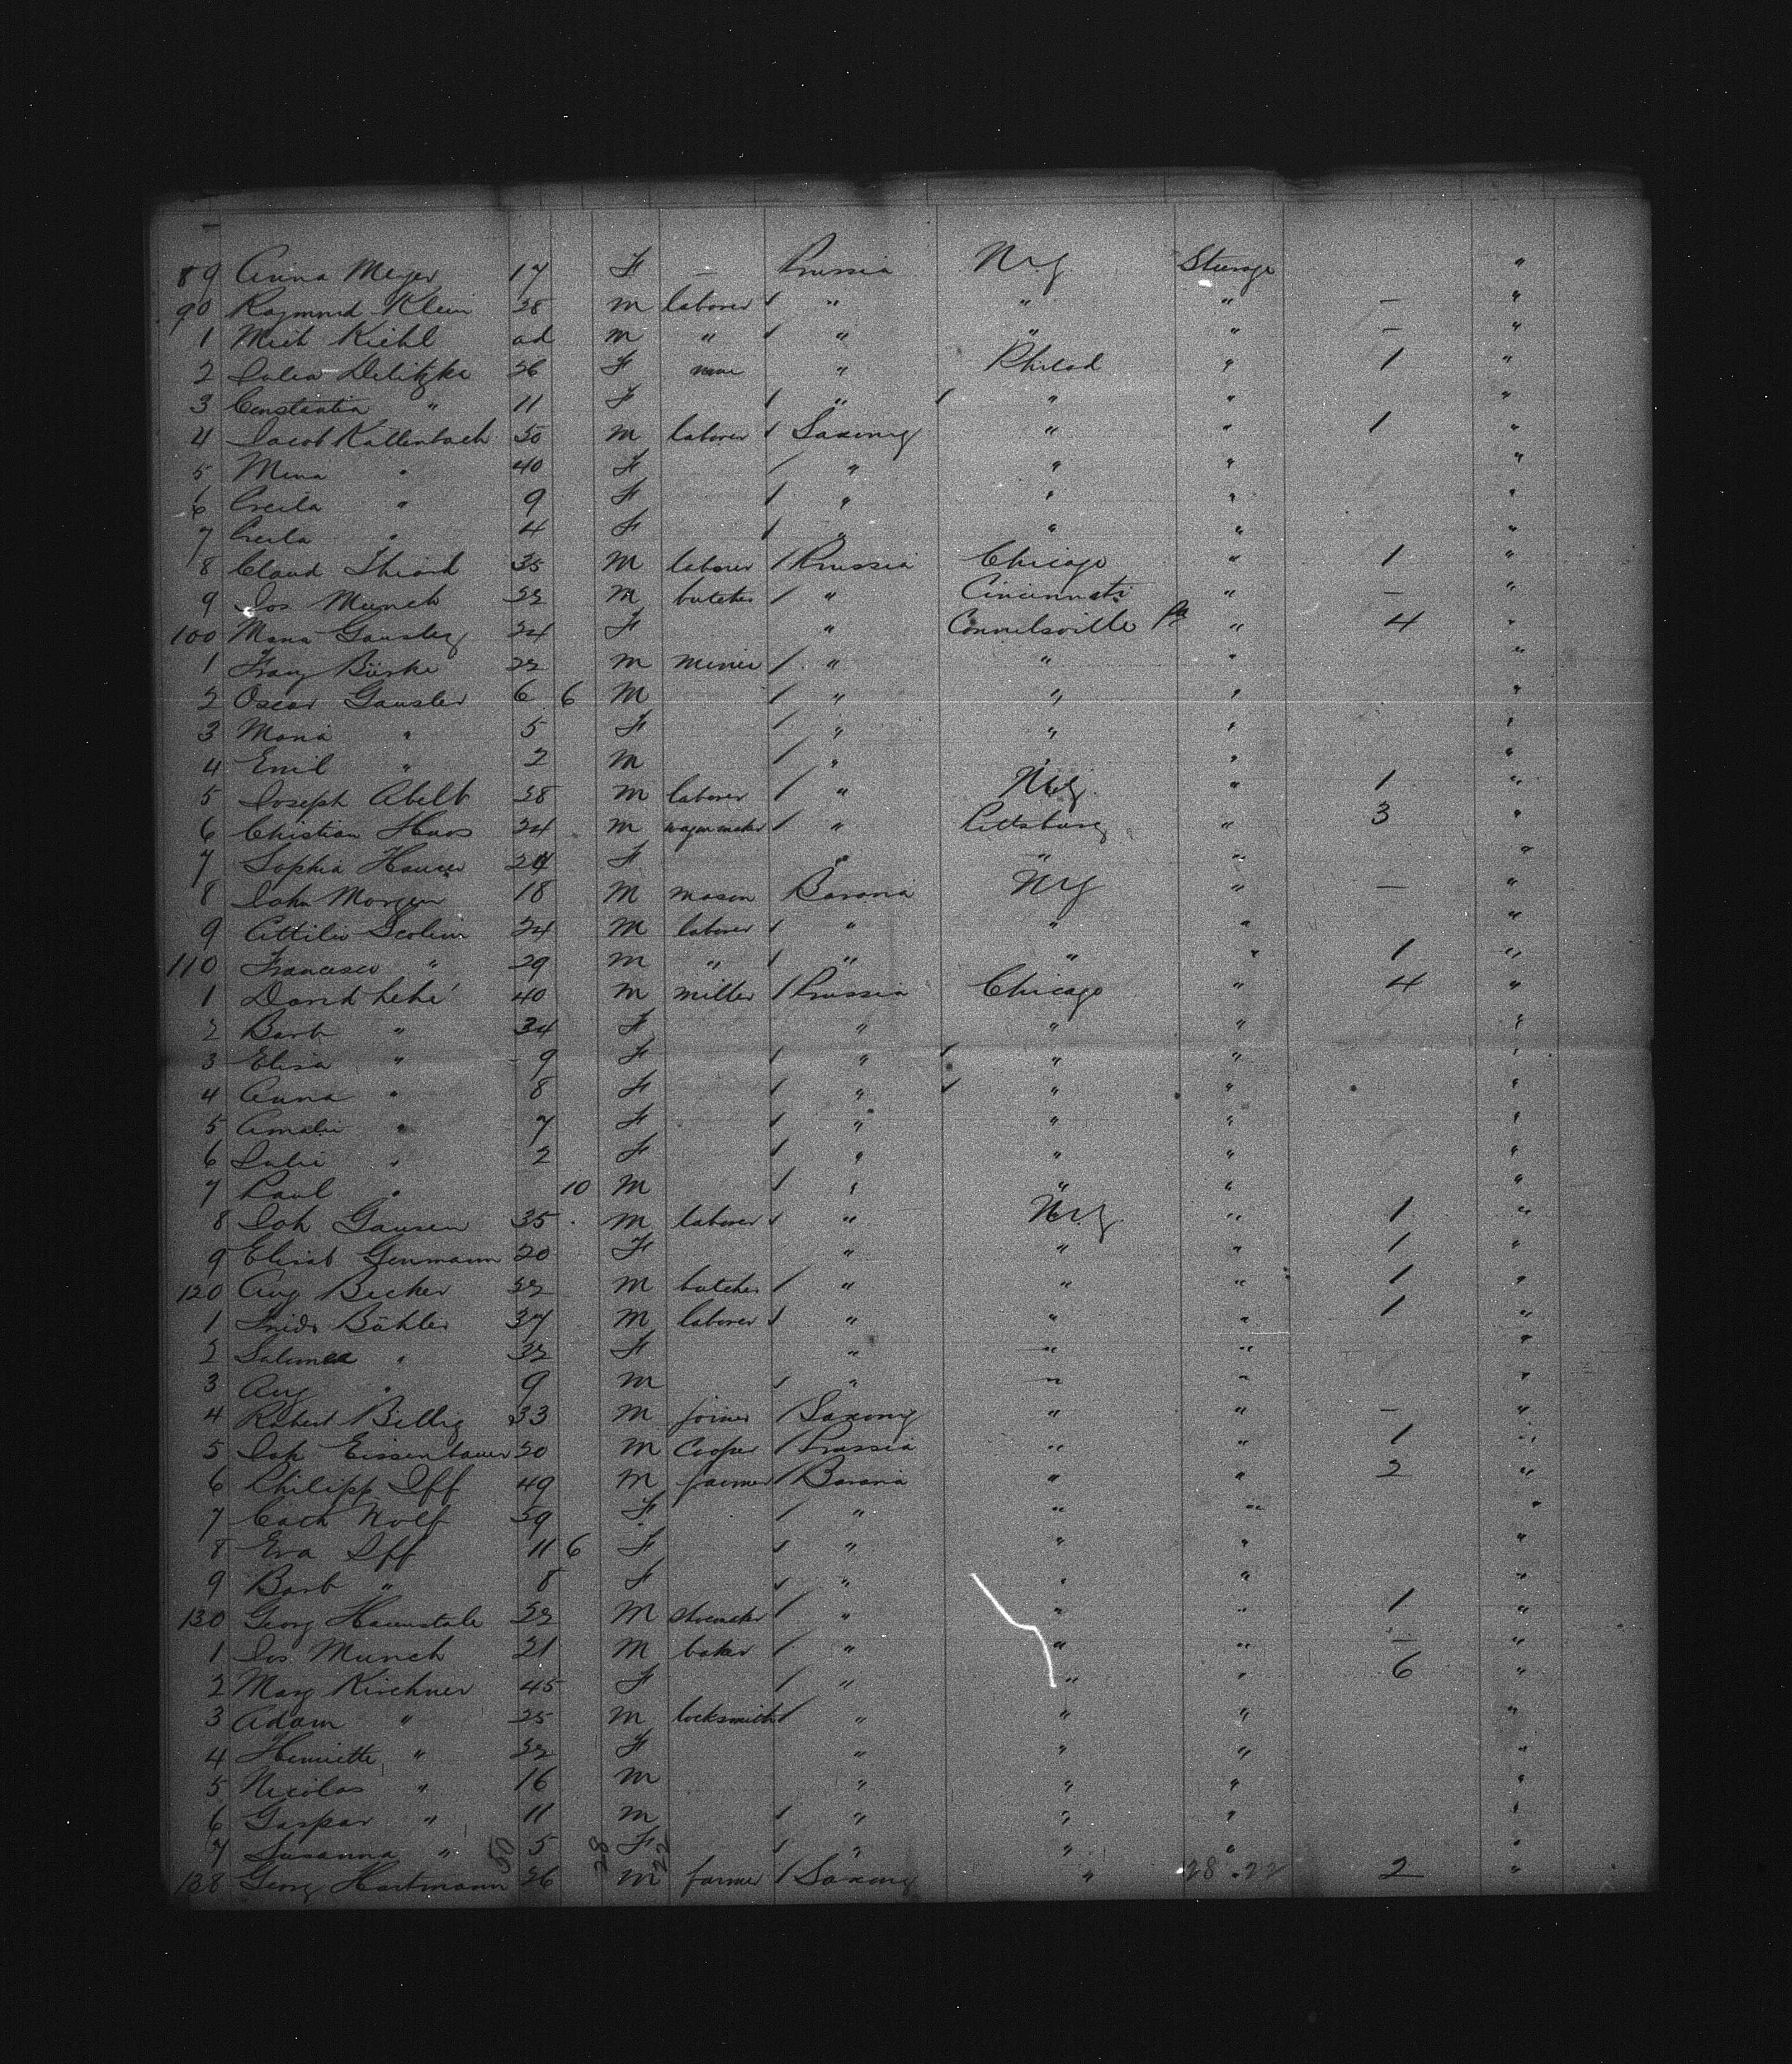 89 Anna Meyer 17 F — Prussia N.Y. Steerage "
90 Raymond Klein 28 M laborer / " " " — "
1 Mich Kiehl ad M " / " " " — "
2 Julia Delitzka 26 F none " Philad " 1 "
3 Constantia " 11 F / " / " " "
4 Jacob Kallenbach 50 M laborer / Saxony " " 1 "
5 Mina " 40 F / " " " "
6 " 9 F / " " " "
7 " 4 F / " " " "
8 Claud Thiard 35 M laborer / Prussia Chicago " 1 "
9 Jos Munch M butcher / " Cincinnati " — "
100 24 F " Connelsville Pa " 4 "
1 Franz M miner / " " " "
2 Oscar Gansler 6 6 M / " " " "
3 Maria " 5 F / " " " "
4 Emil " 2 M / " " " "
5 Joseph Abelt 28 M laborer / " N.Y. " 1 "
6 Christian Haas 24 M wagonmaker / " Pittsburg " 3 "
7 Sophia F " " " "
8 John Morgen 18 M mason Bavaria N.Y. " — "
9 Attilio 24 M laborer / " " " "
110 Francesco " 29 M " / " " " 1 "
1 David Lehé 40 M miller / Prussia Chicago " 4 "
2 Barb " 34 F " " " "
3 Elisa " 9 F / " / " " "
4 Anna " 8 F / " / " " "
5 Amalie " 7 F / " " " "
6 Julie " 2 F / " " " "
7 Paul " 10 M / " " " "
8 Joh Gausen 35 M laborer / " N.Y. " 1 "
9 Elisab 20 F " " " 1 "
120 Aug Becker M butcher / " " " 1 "
1 Fridr Bähler 37 M laborer / " " " 1 "
2 Salomea " 32 F " " " "
3 Aug " 9 M / " " " "
4 Robert Billig 33 M joiner / Saxony " " — "
5 Joh Eissenbauer M Cooper / Prussia " " 1 "
6 Philipp Iff 49 M farmer / Bavaria " " 2 "
7 Cath Wolf F / " " " "
8 Eva Iff 11 6 F / " " " "
9 Barb " 8 F / " " " "
130 Georg M shoemaker / " " " 1 "
1 Jos Munch 21 M baker / " " " — "
2 Marg Kirchner 45 F / " " " 6 "
3 Adam " 25 M locksmith / " " " "
4 Henriette " F " " " "
5 Nicolas " 16 M " " " "
6 Gaspar " 11 M / " " " "
7 Susanna " 5 F / " " " "
50 28 22
138 Georg Hartmann 26 M farmer / Saxony " 28 . 22 2 "